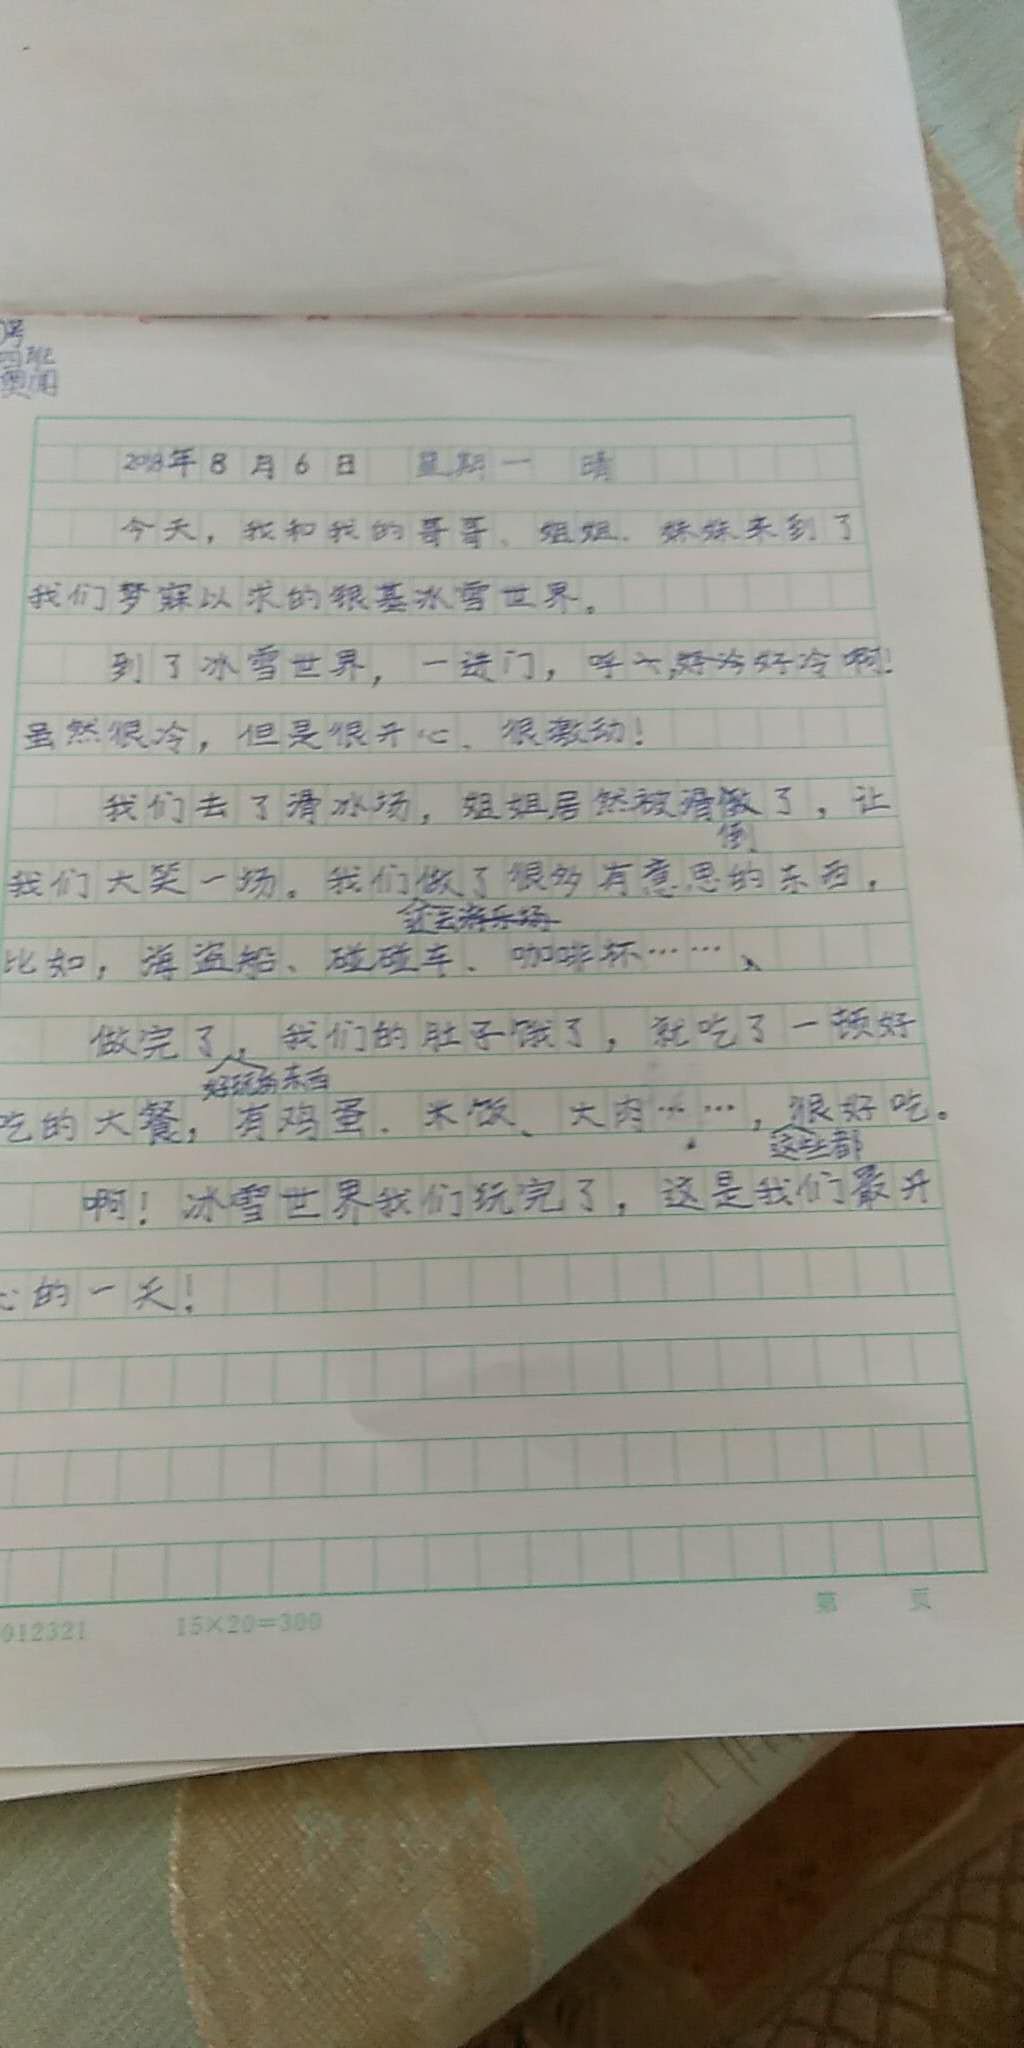 号
四班
2018年8月6日 星期一 晴
今天，我和我的哥哥、姐姐、妹妹来到了
我们梦寐以求的银基冰雪世界。
到了冰雪世界，一进门，呼～，好冷好冷啊！
虽然很冷，但是很开心、很激动！
我们去了滑冰场，姐姐居然被滑了，让
倒
我们大笑一场。我们做了很多有意思的东西，
还去游乐场
比如，海盗船、碰碰车、咖啡杯……、
做完了，我们的肚子饿了，就吃了一顿好
好玩的东西
吃的大餐，有鸡蛋、米饭、大肉……，很好吃。
这些都
啊！冰雪世界我们玩完了，这是我们最开
心的一天！
012321 15×20=300 第 页